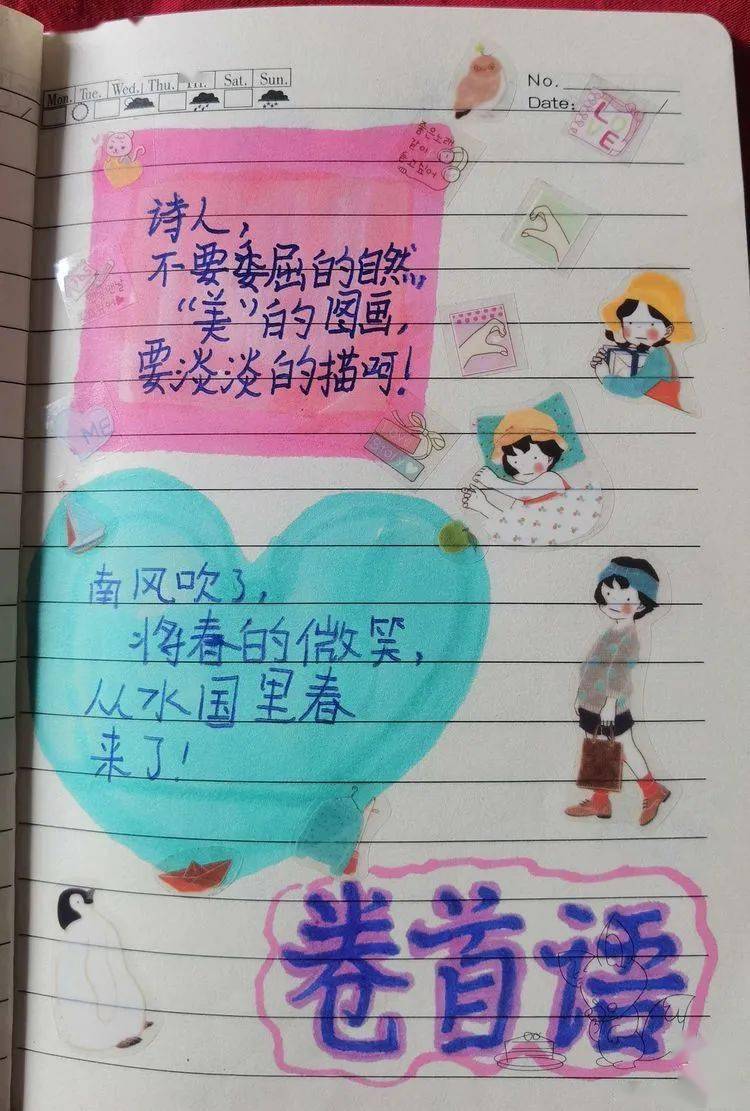 Mon. Tue. Wed. Thu. Fri. Sat. Sun.
No.
Date:
LOVE
좋은노래
같이
듣고싶어
诗人,
不要委屈的自然,
“美”的图画,
要淡淡的描呵!
ME
南风吹了,
将春的微笑,
从水国里春
来了!
卷首语